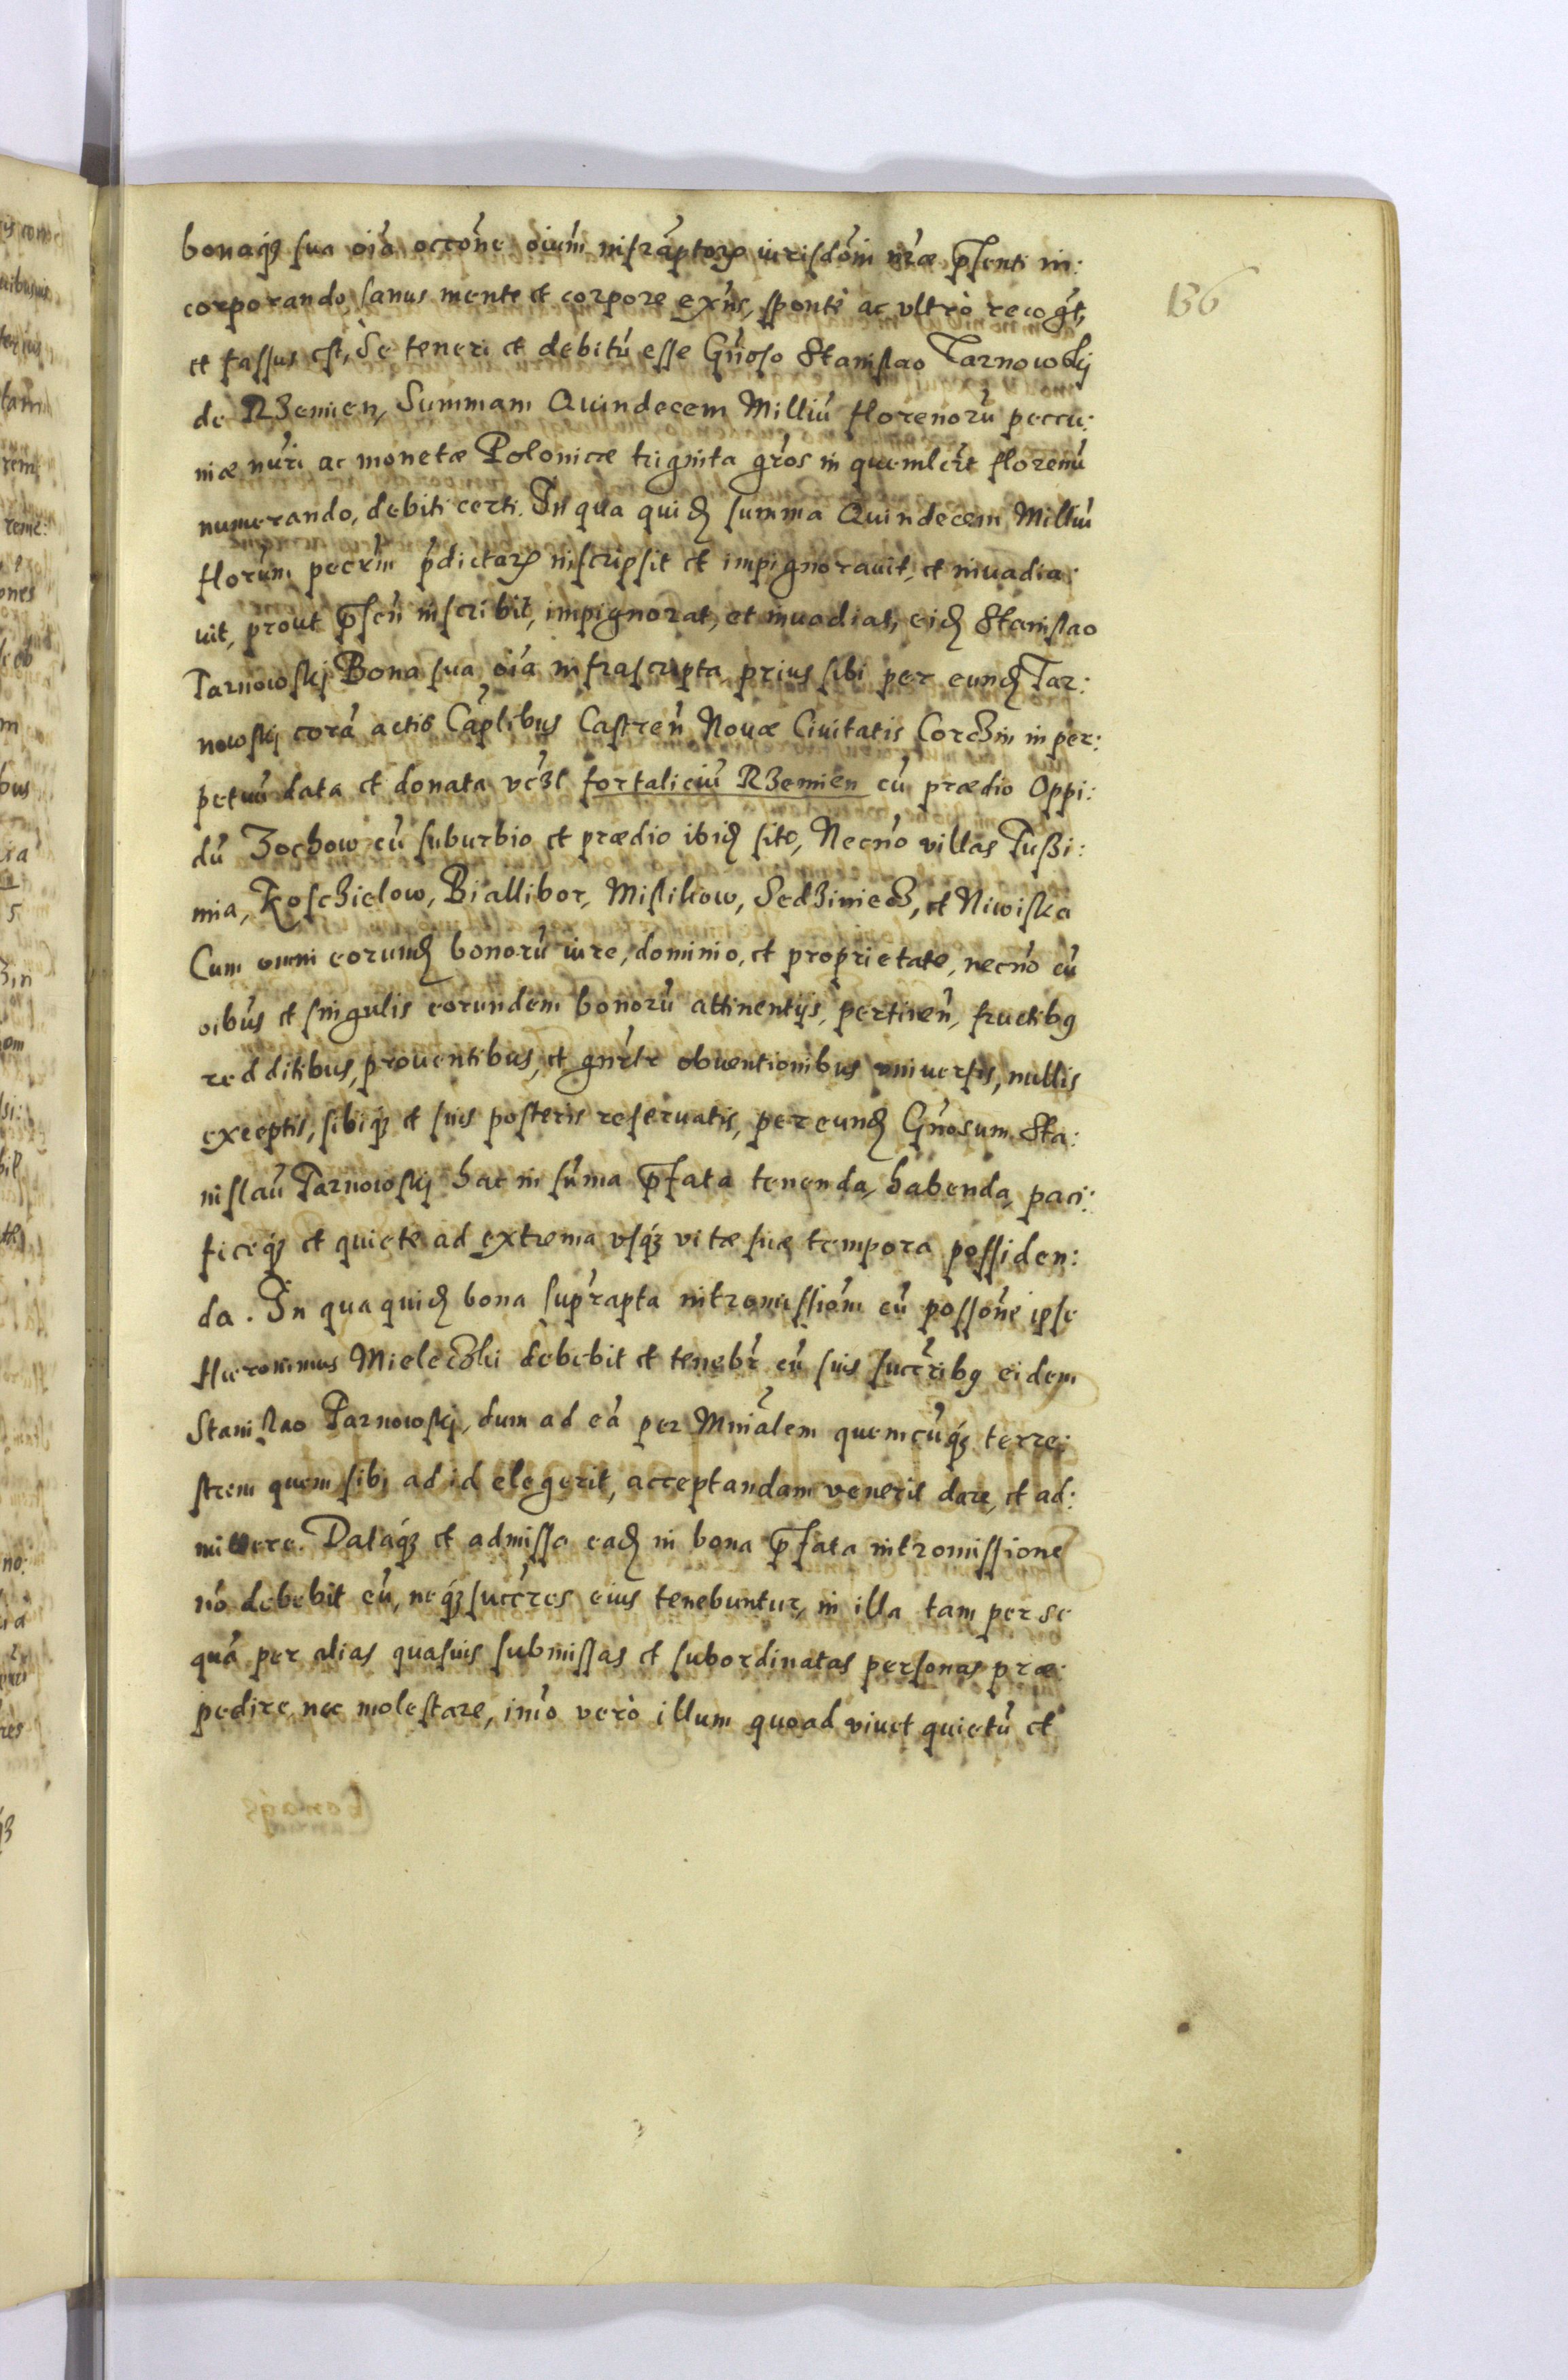 136
bonaq3 sua oia occone oium infraptorꝝ iurisdoni nrae pnsenti in:
corporando, sanus mente et corpore exns, sponte ac vltrò recogt,
et fassus est, Se teneri et debitū esse Gnoso Stanislao Tarnowskj
de Rzemien, Summam Quindecem Milliū florenorū peccu:
niæ nuri ac monetæ Polonicæ triginta gros in quemlibet florenū
numerando, debiti certi. In qua quid summa Quindecem Milliū
florum pecrm pdictarꝝ inscripsit et impignorauit, et inuadia:
uit, prout pnsen inscribit, impignorat, et inuadiat, eid Stanislao
Tarnowskj Bona sua oia infrascripta prius sibi per eund Tar:
nowskj corā actis Caplibus Castren Nouæ Ciuitatis Corczin in per:
petuū data et donata vczl fortaliciū Rzemien cū prædio Oppi:
dū Zochow cū suburbio et prædio ibid sito, Necno villas Tuszi:
mia, Koschielow, Biallibor, Mislikow, Sedziniecz, et Niwiska
Cum omni eorund bonorū iure, dominio, et proprietate, necno cū
oibus et singulis eorundem bonorū attinentijs, pertinen, fructibg
redditibus, prouentibus, et gnrlr obuentionibus vniuersis, nullis
exceptis, sibiq3 et suis posteris reseruatis, per eund Gnosum Sta:
nislaū Tarnowskj hac in sūma pfata tenenda, habenda, paci:
ficeq3 et quiete ad extrema vsq3 vitæ suæ tempora possiden:
da. In qua quid bona suprapta intromissiom cū possone ipse
Hieronimus Mieleczki debebit et tenebr cū suis succribg eidem
Stanislao Tarnowskj, dum ad eā per Minialem quemcūq3 terre:
strem quem sibi ad id elegerit, acceptandam venerit dare, et ad:
mittere. Dataq3 et admissa ead in bona pfata intromissione
nō debebit eū, neq3 succres eius tenebuntur, in illa tam per se
quā per alias quasuis submissas et subordinatas personas præ:
pedire nec molestare, imò verò illum quoad viuet quietū et